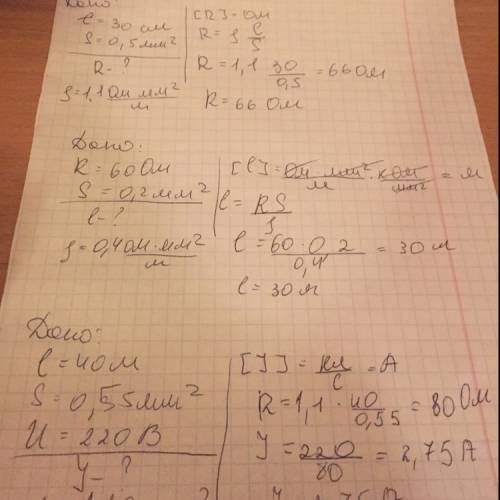 Дано:
ℓ = 30 см
S = 0,5 мм²
R - ?
ρ = 1,1 Ом мм²/м
[R] = Ом
R = ρ ℓ/S
R = 1,1 30/0,5 = 66 Ом
R = 66 Ом
Дано:
R = 60 Ом
S = 0,2 мм²
ℓ - ?
ρ = 0,4 Ом·мм²/м
[ℓ] = = м
ℓ = RS/ρ
ℓ = 60·0 2/0,4 = 30 м
ℓ = 30 м
Дано:
ℓ = 40 м
S = 0,55 мм²
U = 220 В
I - ?
[I] = Кл/с = А
R = 1,1 · 40/0,55 = 80 Ом
I = 220/80 = 2,75 А